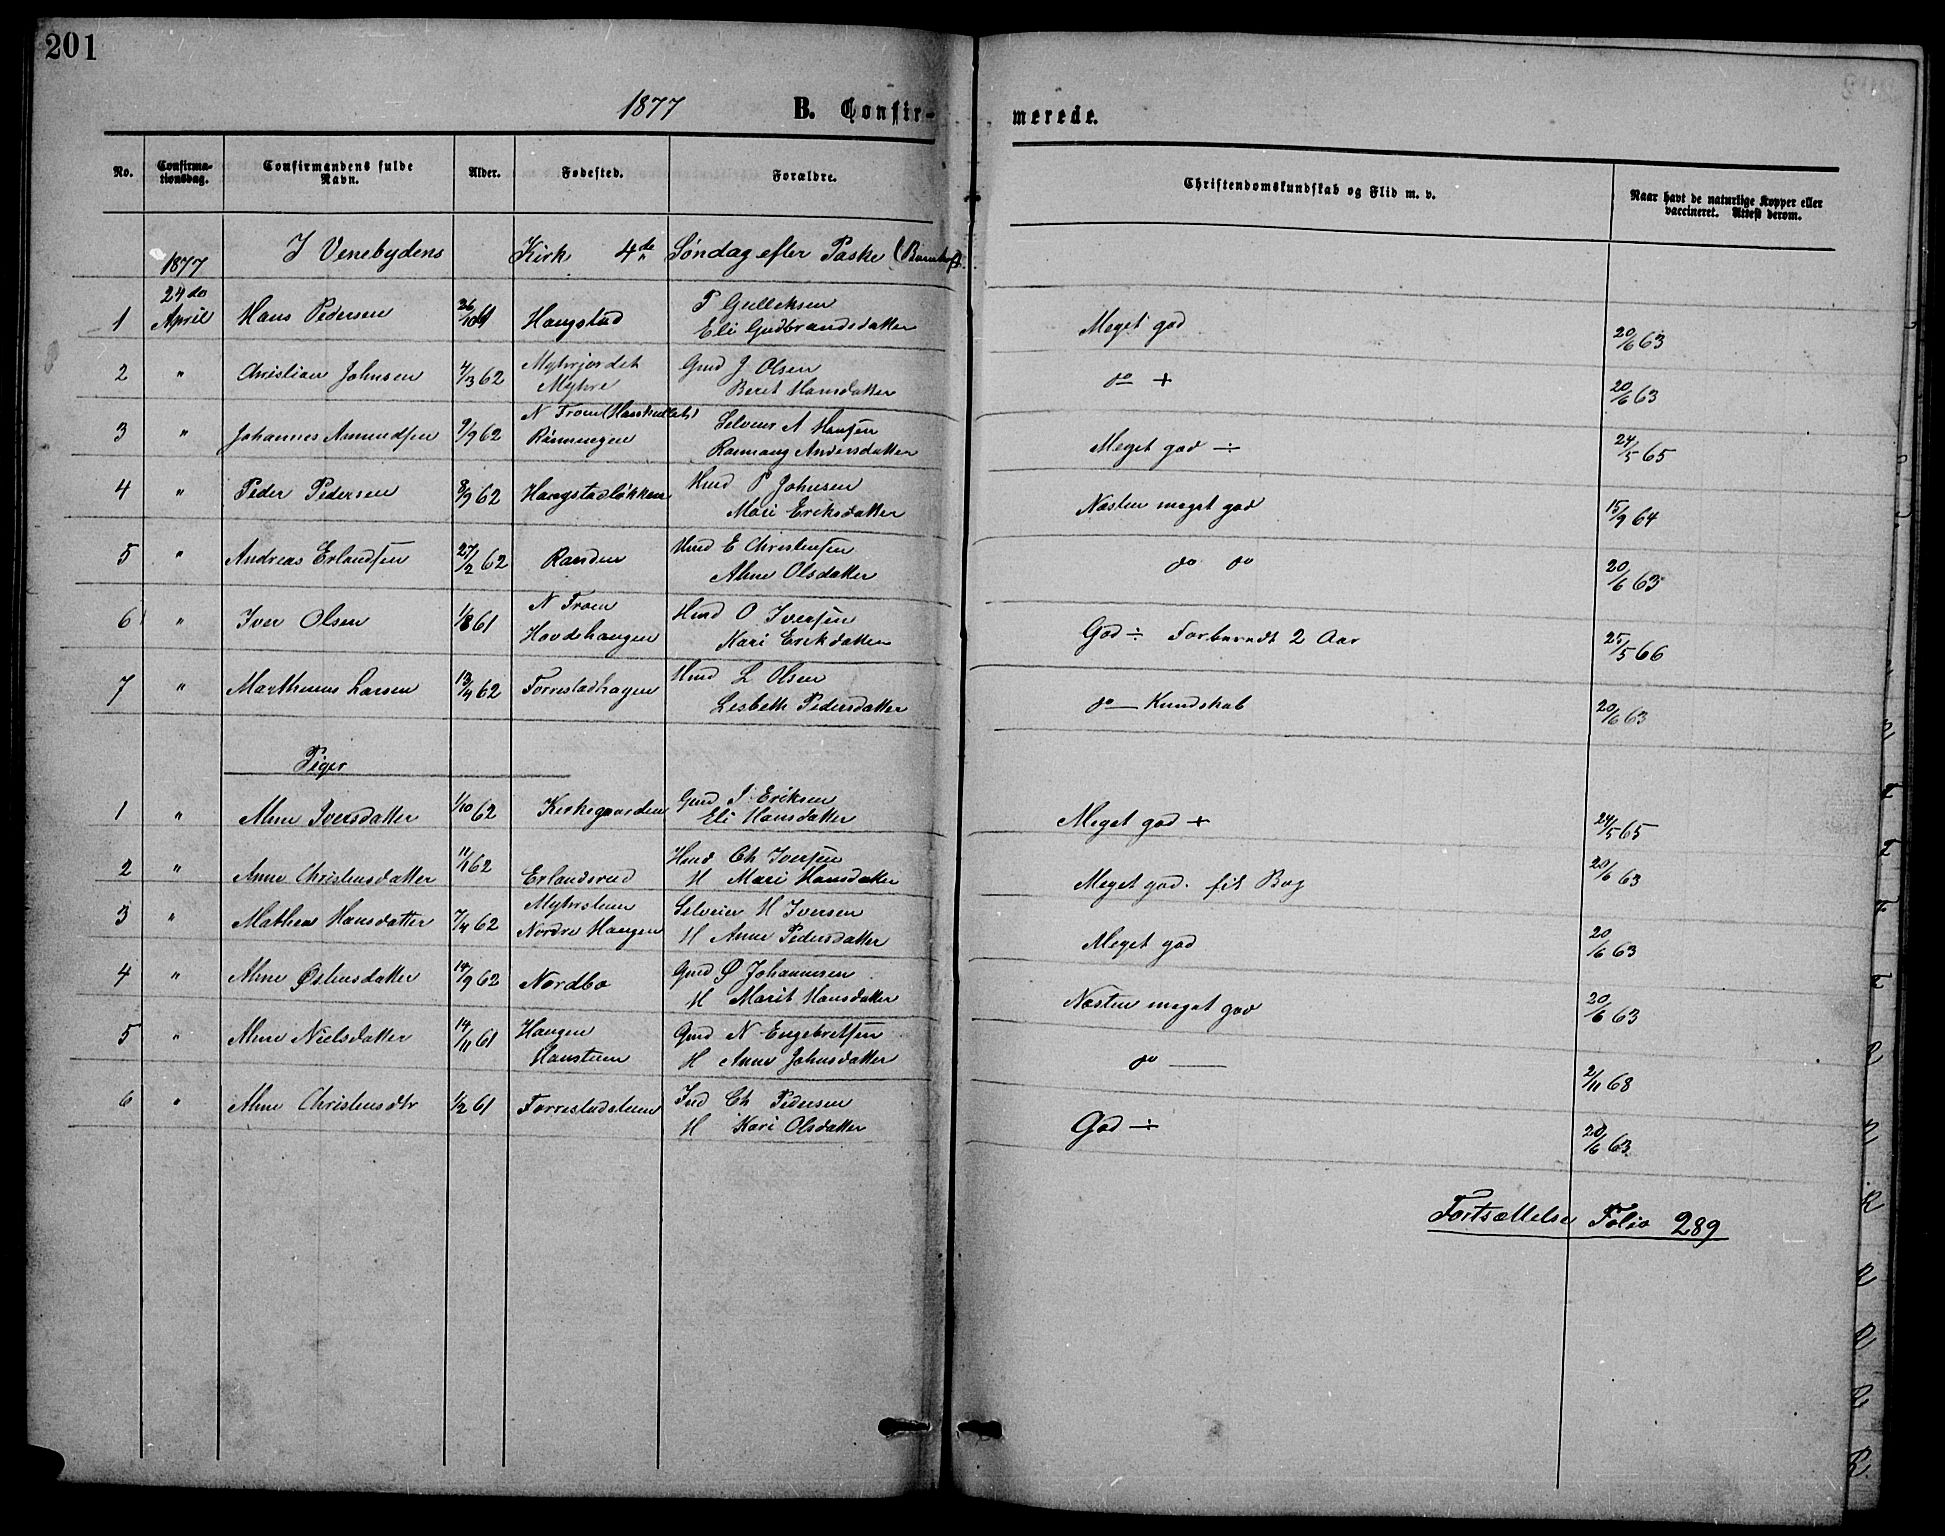 201
1877 B. Confirmerede.
No. Confirmationsdag. Confirmandens fulde Navn. Alder. Fødested. Forældre. Christendomskundskab og Flid m. v. Naar havt de naturlige Kopper eller vaccineret. Attest derom.
1877 I Venebydens Kirke 4de Søndag efter Paske
1 24de April Hans Pedersen 26/10 61 Haugstad P Gulleksen Meget god 20/6 63
Eli Gudbrandsdatter
2 " Christian Johnsen 4/3 62 Myhrjordet Gmd J. Olsen do + 20/6 63
Myhre Beret Hansdatter
3 " Johannes Amundsen 9/9 62 N Trom Selveier A Hansen Meget god ÷ 24/5 65
Rønningen Rannaug Andersdatter
4 " Peder Pedersen 8/9 62 Haugstadløkken Hmd P Johnsen Næsten meget god 15/9 64
Mari Eriksdatter
5 " Andreas Erlandsen 27/2 62 Randen Hmd E Christensen do do 20/6 63
Ahne Olsdatter
6 " Iver Olsen 1/8 61 N Trom Hmd O Iversen God ÷ Forberedt 2 Aar 25/5 66
Hovdehaugen Kari Erikdatter
7 " Marthinus Larsen 13/4 62 Forrestadhagen Hmd L Olsen do — Kundskab 20/6 63
Lisbeth Pedersdatter
Piger
1 " Ahne Iversdatter 1/10 62 Kirkegaarden Gmd I. Eriksen Meget god + 24/5 65
Eli Hansdatter
2 " Anne Christensdatter 11/1 62 Erlandsrud Hmd Ch Iversen Meget god. fit Bog 20/6 63
H Mari Hansdatter
3 " Mathea Hansdatter 7/4 62 Myhrstuen Selveier H Iversen Meget god 20/6 63
Nordre Haugen H Anne Pedersdatter
4 " Ahne Østensdatter 14/9 62 Nordbo Gmd Ø Johannesen Næsten meget god 20/6 63
H Marit Hansdatter
5 " Ahne Nielsdatter 14/11 61 Haugen Gmd N Engebretsen do — 2/11 68
H Anne Johnsdatter
6 " Ahne Christensdtr 1/2 61 Forrestadstuen Ind Ch Pedersen God ÷ 20/6 63
H Kari Olsdatter
Fortsættelse Folio 289